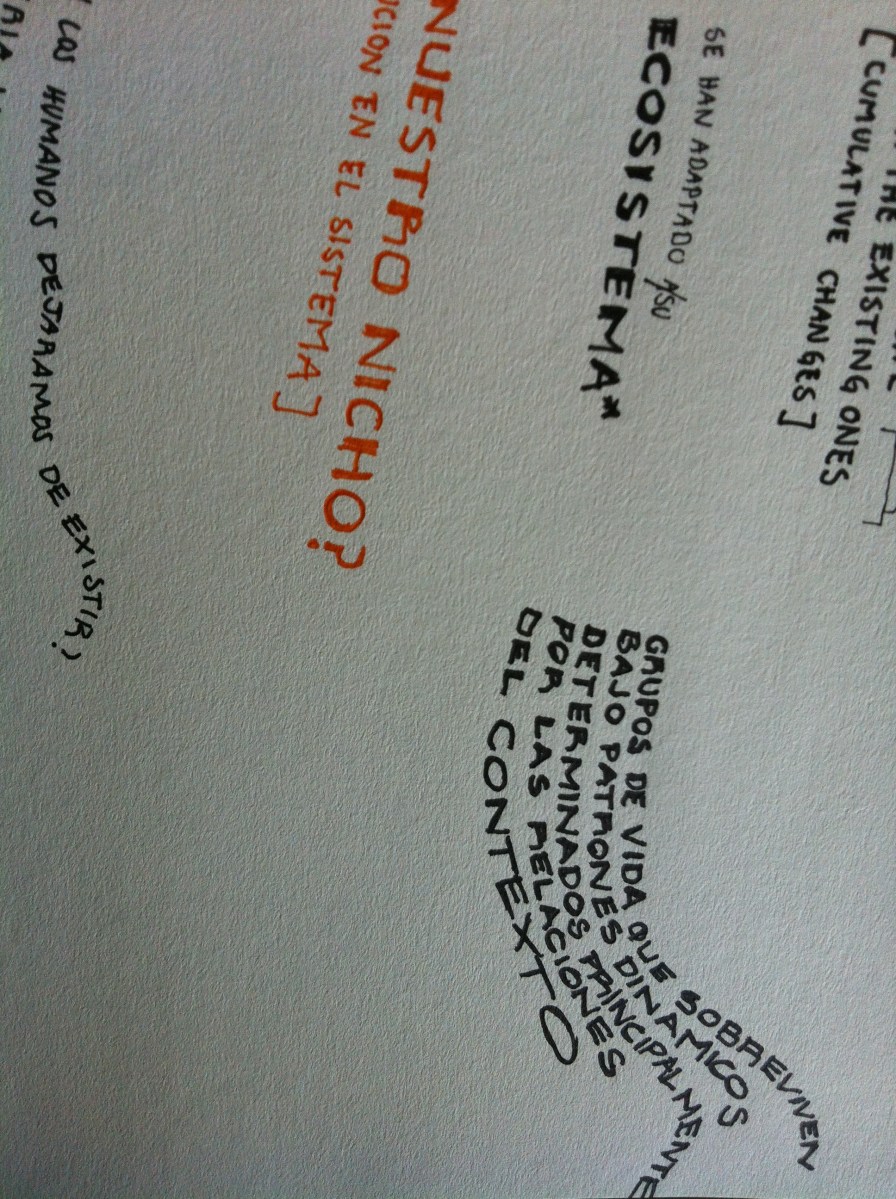 THE EXISTING ONES
[CUMULATIVE CHANGES]
SE HAN ADAPTADO A/SU
ECOSISTEMA*
GRUPOS DE VIDA QUE SOBREVIVEN
BAJO PATRONES DINAMICOS
DETERMINADOS PRINCIPALMENTE
POR LAS RELACIONES
DEL CONTEXTO
NUESTRO NICHO?
CION EN EL SISTEMA]
LOS HUMANOS DEJARAMOS DE EXISTIR?